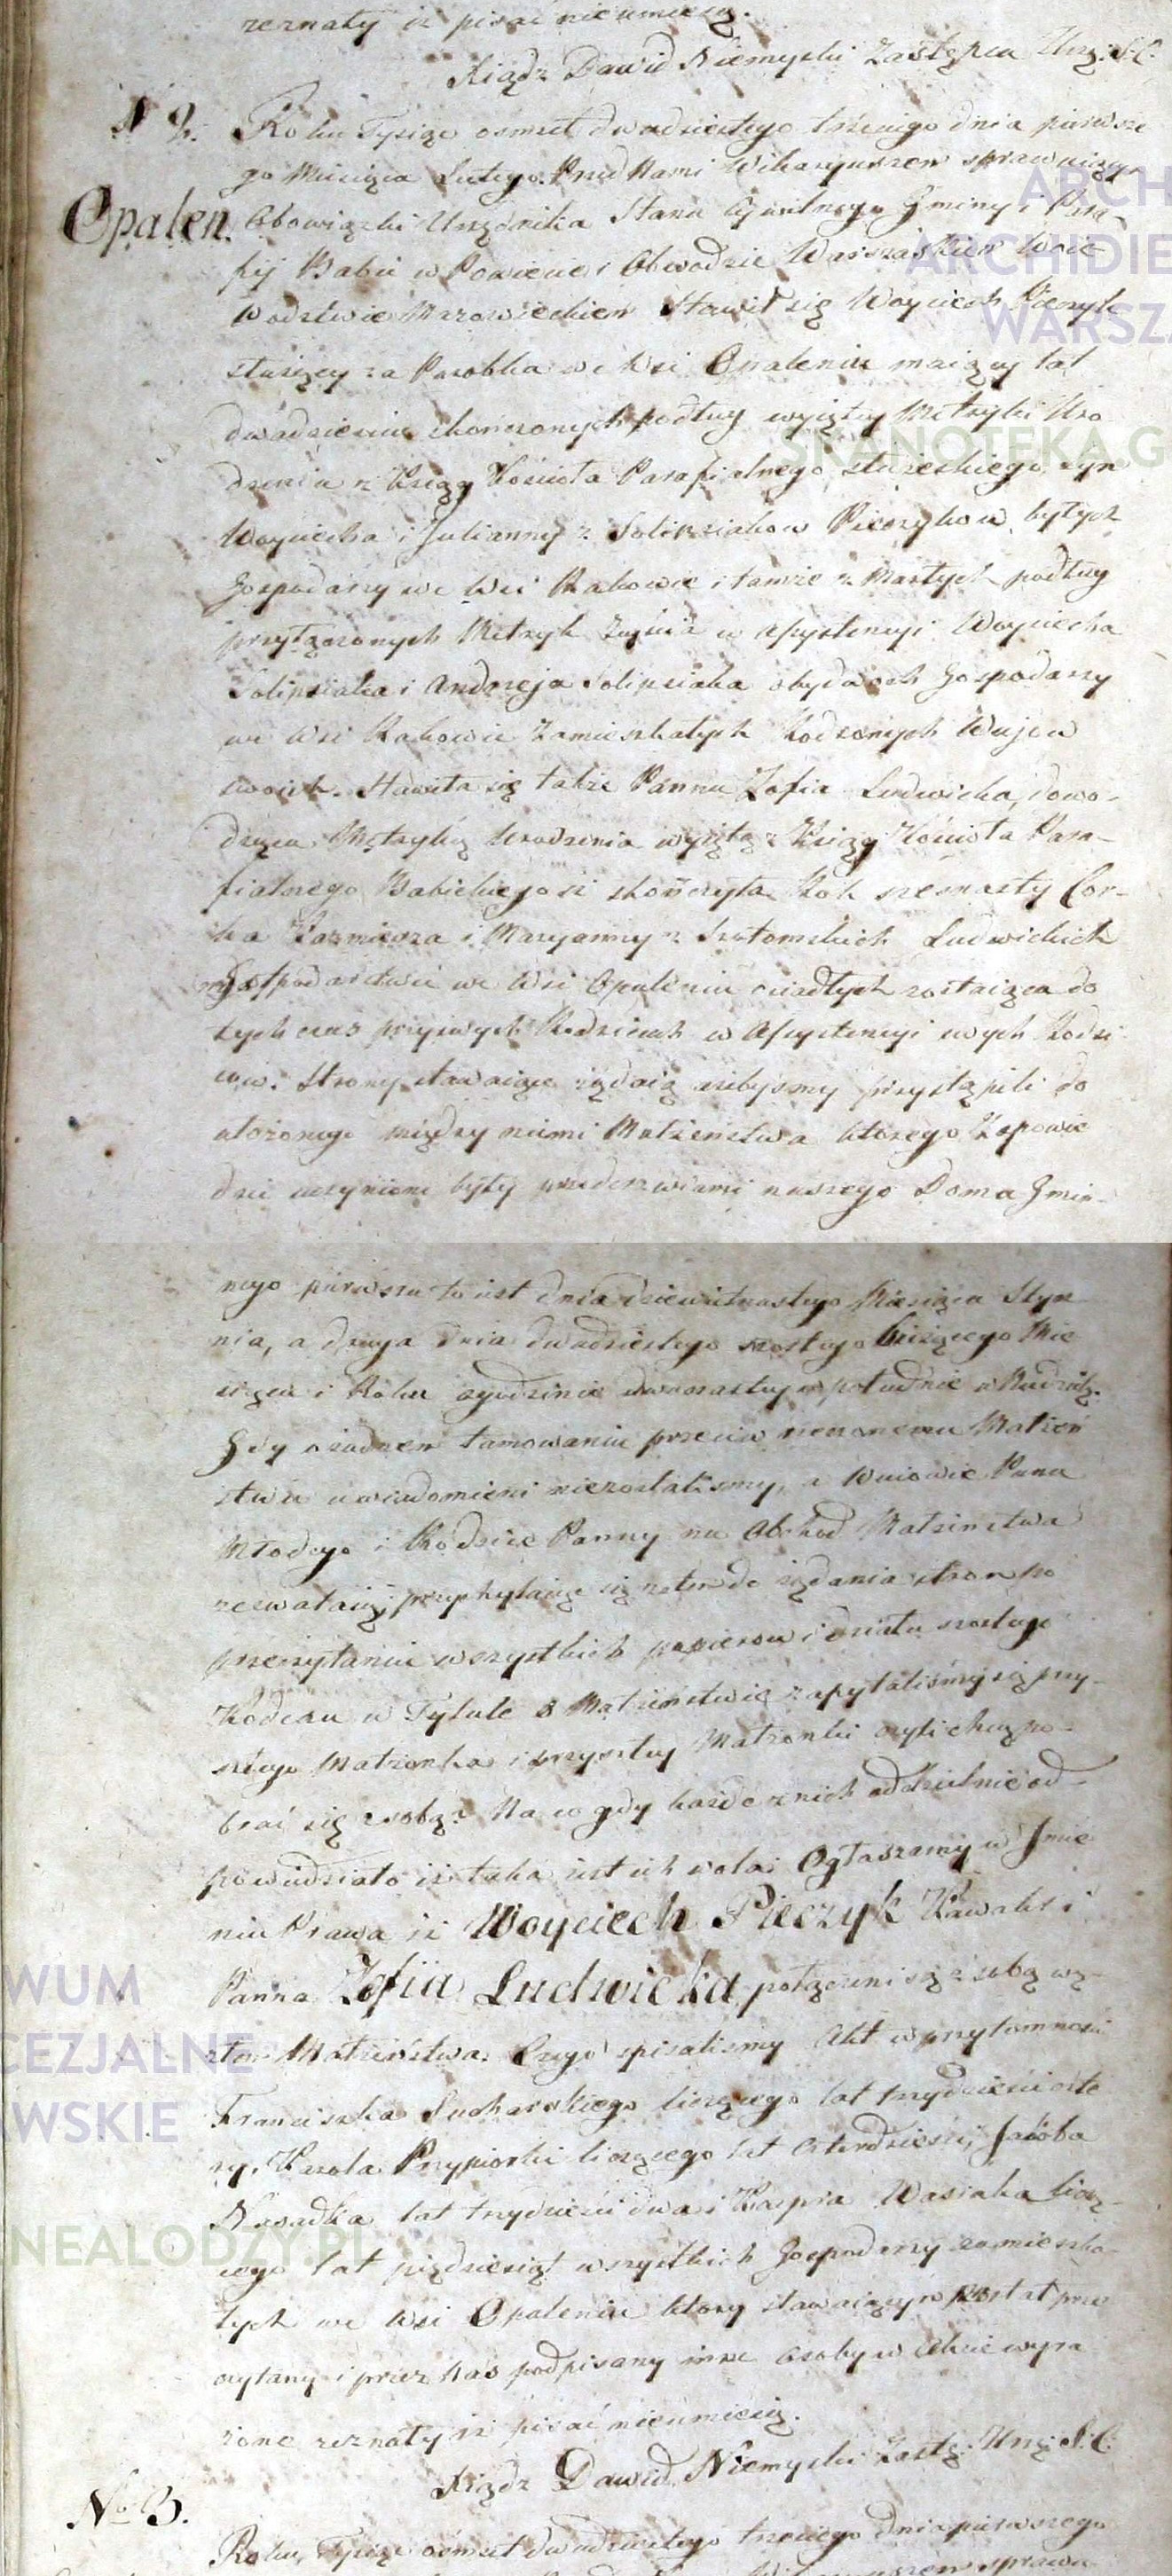 zeznały iż pisać nieumieią.
Xiądz Dawid Niemyski Zastępca Urz: S: C:
N 2. Roku Tysiąc osmset dwudziestego trzeciego dnia pierwsze
go Miesiąca Lutego. Przed Nami Wikaryuszem sprawuiącym
Opalen. Obowiązki Urzędnika Stanu Cywilnego Gminy i Para-
fij Babic w Powiecie i Obwodzie Warszaskiem Woie-
wodztwie Mazowieckiem Stawił się Woyciech Pieczyk
służący za Parobka we Wsi Opaleniu maiący lat
dwadzieścia skończonych podług wyiętey Metryki Uro
dzenia z Xięgą Kościoła Parafialnego syn
Woyciecha i Julianny z Pieczykow byłych
Gospodarzy we Wsi Rakowie i tamże zmarłych podług
przyłączonych Metryk Zeyścia w Assystencyi Woyciecha
i Andrzeja obydwoch Gospodarzy
we Wsi Rakowie Zamieszkałych Rodzonych Wujow
swoich. Stawiła się także Panna Zofia Ludwicka, dowo-
dząca Metryką Urodzenia wyiętą z Xięgą Kościoła Para-
fialnego Babickiego iż skończyła Rok szesnasty Cor-
ka Kazmierza i Maryanny z Ludwickich
w Gospodarstwie we Wsi Opaleniu osiadłych zostaiąca do
tych czas przy swych Rodzicach w Assystencyi swych Rodzi
cow. Strony stawaiące żądaią ażebyśmy przystąpili do
ułożonego między niemi Małżeństwa ktorego Zapowie
dzi uczynione były przede drzwiami naszego Domu Gmin-
nego pierwsza to iest dnia dziewiętnastego Miesiąca Stycz
nia, a druga dnia dwudziestego szostego bieżącego Mie
siąca i Roku o godzinie dwunastey w południe w Niedzielę.
Gdy o żadnem tamowaniu przeciw rzeczonemu Małżeń
stwu uwiadomieni niezostaliśmy, a Wuiowie Pana
Młodego i Rodzice Panny na Obchod Małżeństwa
zezwalaią, przychylaiąc się zatem do żądania stron po
przeczytaniu wszystkich papierow i działu szostego
Kodexu w Tytule o Małżeństwie zapytaliśmy się przy-
szłego Małżonka i przyszłey Małżonki czyli chcą po-
brać się z sobą? Na co gdy każde z nich oddzielnie od-
powiedziało iż taka iest ich wola; Ogłaszamy w Jmie
niu Prawa iż Woyciech Pieczyk Kawaler i
Panna Zofiia Ludwicka połączeni są z sobą wę-
złem Małżeństwa. Czego spisaliśmy Akt w przytomności
Franciszka Sucharskiego liczącego lat trzydzieści czte
ry, Karola Przypiorki liczącego lat czterdzieści, Jakoba
Nasadka lat trzydzieści dwa i Kaspra Wasiaka liczą-
cego lat pięćdziesiąt wszystkich Gospodarzy zamieszka-
łych we Wsi Opaleniu ktory stawaiącym został prze
czytany i przez Nas podpisany inne Osoby w Akcie wyra
żone zeznały iż pisać nieumieią.
Xiądz Dawid Niemyski Zastę: Urzę: S: C:
No 3.
Roku Tysiąc osmset dwudziestego trzeciego dnia pierwszego
ARCH
ARCHIDIE
WARSZ
SKANOTEKA.G
WUM
CEZJALNE
AWSKIE
NEALODZY.PL